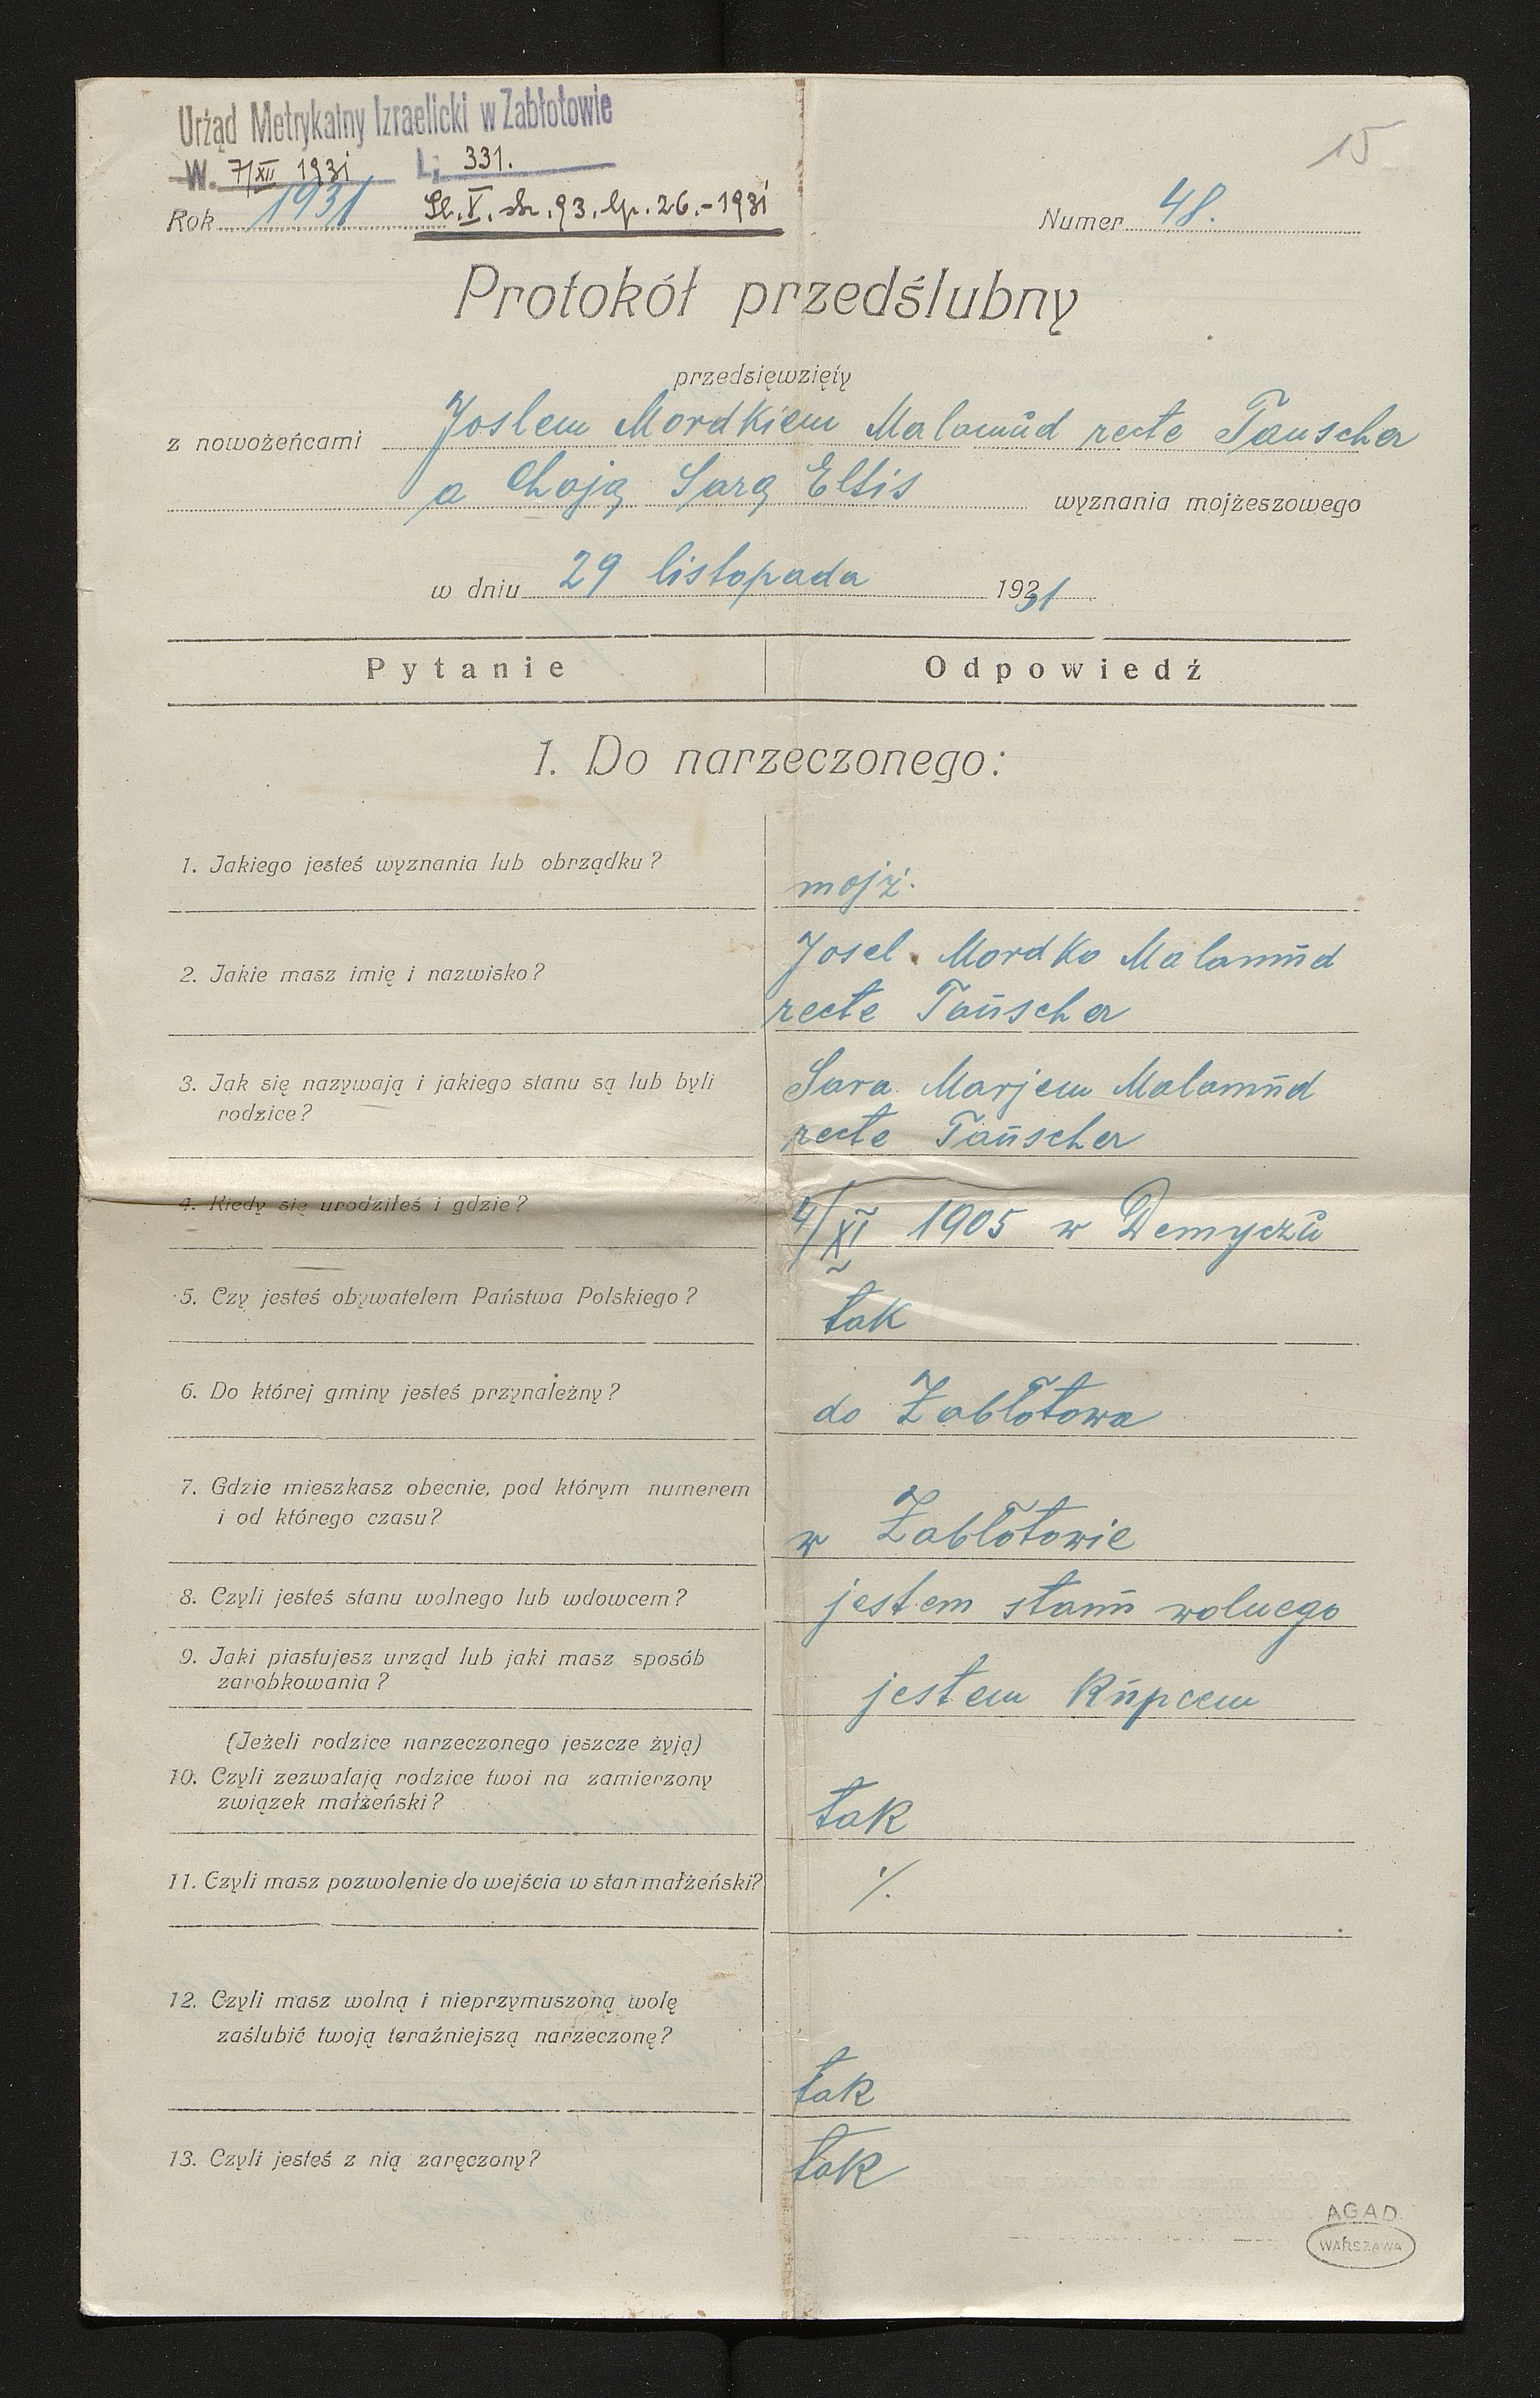 Urząd Metrykalny Izraelicki w Zabłotowie
W. 7/XII 1931 L: 331.
15
Rok 1931 Sl. V. str. 93. lp. 26.-1931
Numer 48.
Protokół przedślubny
przedsięwzięty
z nowożeńcami Joslem Mordkiem Malamud recte Tauscher
a Chają Sarą Eltis wyznania mojżeszowego
w dniu 29 listopada 1931
Pytanie Odpowiedź
1. Do narzeczonego:
1. Jakiego jesteś wyznania lub obrządku?
mojż.
2. Jakie masz imię i nazwisko?
Josel Mordko Malamud
recte Tauscher
3. Jak się nazywają i jakiego stanu są lub byli
rodzice?
Sara Marjem Malamud
recte Tauscher
4. Kiedy się urodziłeś i gdzie?
4/XI 1905 w Demyczu
5. Czy jesteś obywatelem Państwa Polskiego?
tak
6. Do której gminy jesteś przynależny?
do Zabłotowa
7. Gdzie mieszkasz obecnie, pod którym numerem
i od którego czasu?
w Zabłotowie
8. Czyli jesteś stanu wolnego lub wdowcem?
jestem stanu wolnego
9. Jaki piastujesz urząd lub jaki masz sposób
zarobkowania?
jestem kupcem
(Jeżeli rodzice narzeczonego jeszcze żyją)
10. Czyli zezwalają rodzice twoi na zamierzony
związek małżeński?
tak
11. Czyli masz pozwolenie do wejścia w stan małżeński?
./.
12. Czyli masz wolną i nieprzymuszoną wolę
zaślubić twoją teraźniejszą narzeczonę?
tak
13. Czyli jesteś z nią zaręczony?
tak
AGAD
WARSZAWA